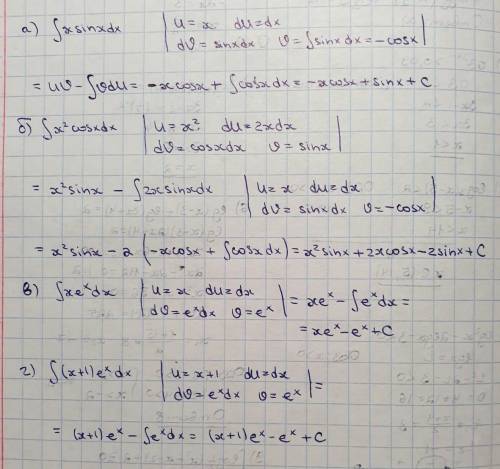 а) ∫xsinxdx | u = x du = dx
dv = sinxdx v = ∫sinxdx = -cosx |
= uv - ∫vdu = -xcosx + ∫cosxdx = -xcosx + sinx + C
б) ∫x²cosxdx | u = x² du = 2xdx
dv = cosxdx v = sinx |
= x²sinx - ∫2xsinxdx | u = x du = dx
dv = sinxdx v = -cosx |
= x²sinx - 2(-xcosx + ∫cosxdx) = x²sinx + 2xcosx - 2sinx + C
в) ∫xeˣdx | u = x du = dx
dv = eˣdx v = eˣ | = xeˣ - ∫eˣdx =
= xeˣ - eˣ + C
г) ∫(x+1)eˣdx | u = x+1 du = dx
dv = eˣdx v = eˣ | =
= (x+1)eˣ - ∫eˣdx = (x+1)eˣ - eˣ + C